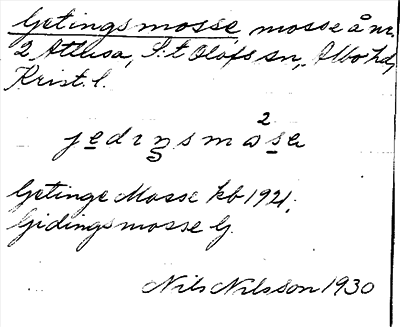 Getingsmosse, mosse å nr
2 Attusa, S:t Olofs sn, Albo hd,
Krist. l.
2
jedingsmosa
Getinge Mosse kb 1921.
Gidingsmosse G.
Nils Nilsson 1930